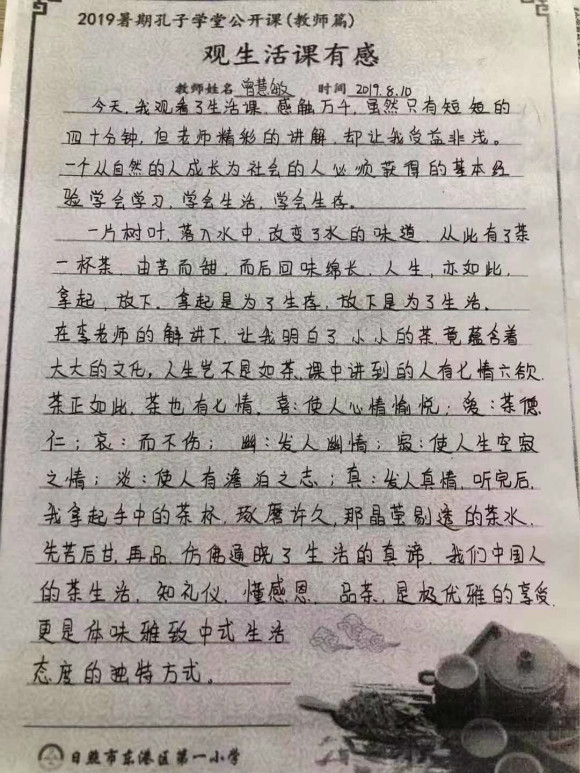 2019暑期孔子学堂公开课(教师篇)
观生活课有感
教师姓名 曾慧敏 时间 2019.8.10
今天,我观看了生活课,感触万千,虽然只有短短的
四十分钟,但老师精彩的讲解,却让我受益非浅。
一个从自然的人成长为社会的人必须获得的基本经
验学会学习,学会生活,学会生存。
一片树叶,落入水中,改变了水的味道,从此有了茶
一杯茶,由苦而甜,而后回味绵长,人生,亦如此,
拿起,放下。拿起是为了生存,放下是为了生活。
在李老师的解讲下,让我明白了小小的茶,竟蕴含着
大大的文化,人生岂不是如茶,课中讲到的人有七情六欲
茶正如此,茶也有七情,喜:使人心情愉悦;爱:茶德
仁;哀:而不伤;幽:发人幽情;寂:使人生空寂
之情;淡:使人有澹泊之志;真:发人真情,听完后,
我拿起手中的茶杯,琢磨许久,那晶莹剔透的茶水,
先苦后甘,再品,仿佛通晓了生活的真谛,我们中国人
的茶生活,知礼仪,懂感恩,品茶,是极优雅的享受
更是体味雅致中式生活
态度的独特方式。
日照市东港区第一小学